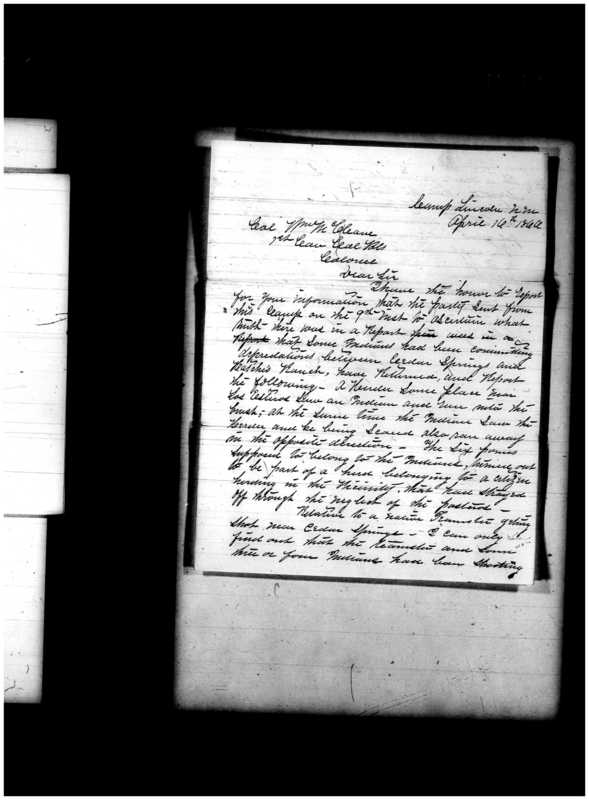 Camp Lincoln N.M
April 16th 1866
Col Wm McCleave
1st Cav Cal Vols
Colonel
Dear Sir
I have the honor to report
for your information that the party sent from
this Camp on the 9th inst to ascertain what
truth there was in a Report
that some Indians had been committing
depredations between Cedar Springs and
Ranch, have returned, and Report
the following - A Herder some place near
Los Esteros saw an Indian and run into the
brush; at the same time the Indian saw the
Herder and he being scared also ran away
in the opposite direction - The six ponies
supposed to belong to the Indians, turned out
to be part of a herd belonging to a citizen
herding in the vicinity, that had strayed
off through the neglect of the pastors -
Relative to a native Teamster getting
shot near Cedar Springs - I can only
find out that the teamster and some
three or four Indians had been shooting